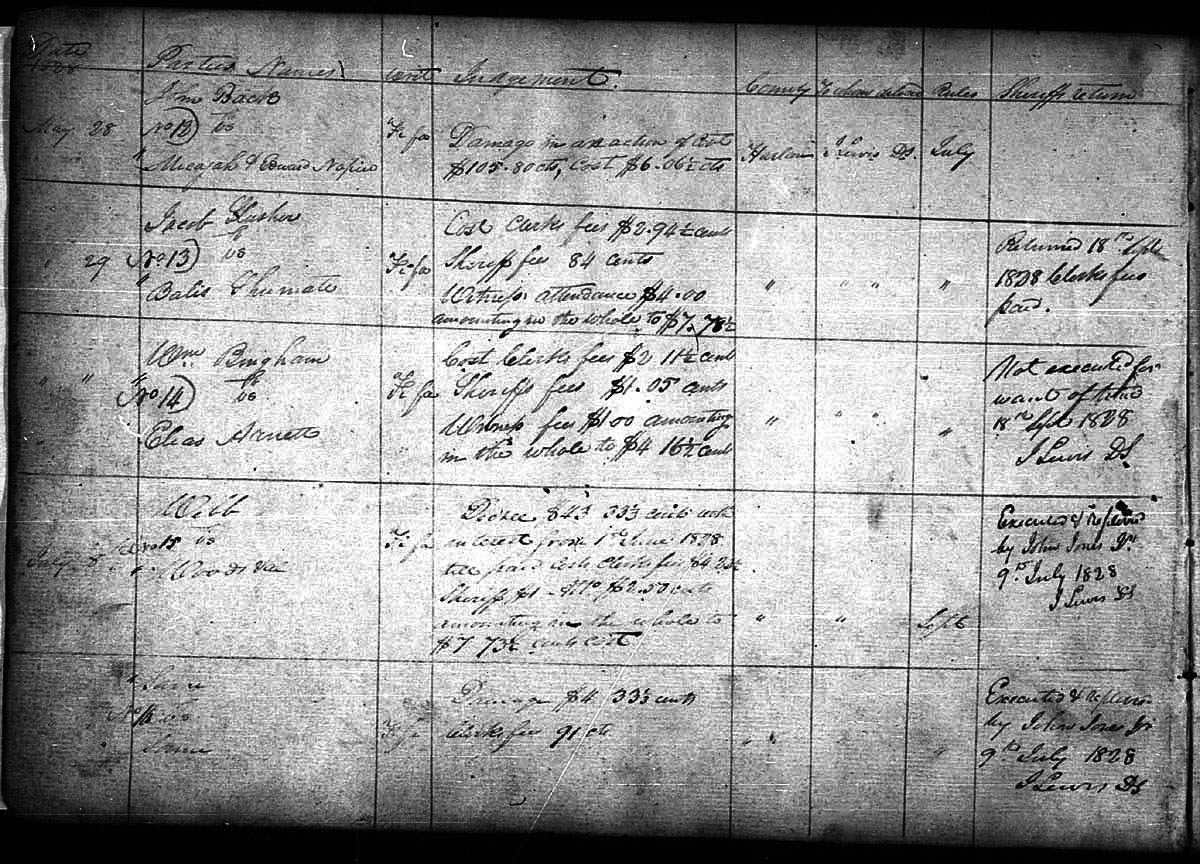 Date
1828
Parties Names
writ
Judgement.
County
To whom delivd
Rules
Sheriffs return
John Back
May 28
No 12)
vs
Fi fa
Damage in an action of Cov't
Micajah & Edward Napier
$105.80 cts, Cost $6.06½ cts
Harlan
I Lewis DS.
July
Jacob Slusher
Cost Clerks fees $2.94½ cents
" 29
No 13)
vs
Fi fa
Sheriffs fees 84 cents
Balis Shumate
Witness attendance $4.00
amounting in the whole to $7.78½
"
" "
"
Returned 18th Sept
1828 Clerks fees
paid.
Wm. Bingham
Cost Clerks fees $2 11½ cents
" "
No 14)
vs
Fi fa
Sheriffs fees $1.05 cents
Elias Arnett
Witness fees $1.00 amounting
in the whole to $4 16½ cents
"
" "
"
Not executed for
want of time
18th Sept 1828
I Lewis DS.
Webb
July 8
No 15
vs
Fi fa
33⅓ cents with
interest from 1st June 1828
till paid Clerks fees $4 23½
Sheriff $1 $2.50 cents
amounting in the whole to
$7 73½ cents cost
"
"
Sept
Executed & replevied
by John Jones Jr
9th July 1828
I Lewis DS
Same
No 16
vs
Same
Fi fa
Damage $4 33⅓ cents
Clerks fees 91 cts
" "
"
Executed & replevied
by John Jones Jr
9th July 1828
I Lewis DS